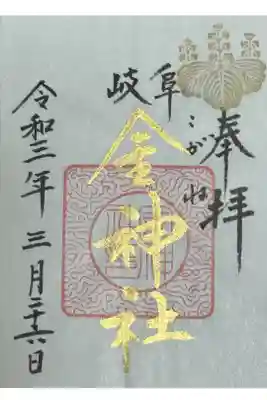 奉拝
岐阜
こがね
金神社
令和三年 三月二十六日